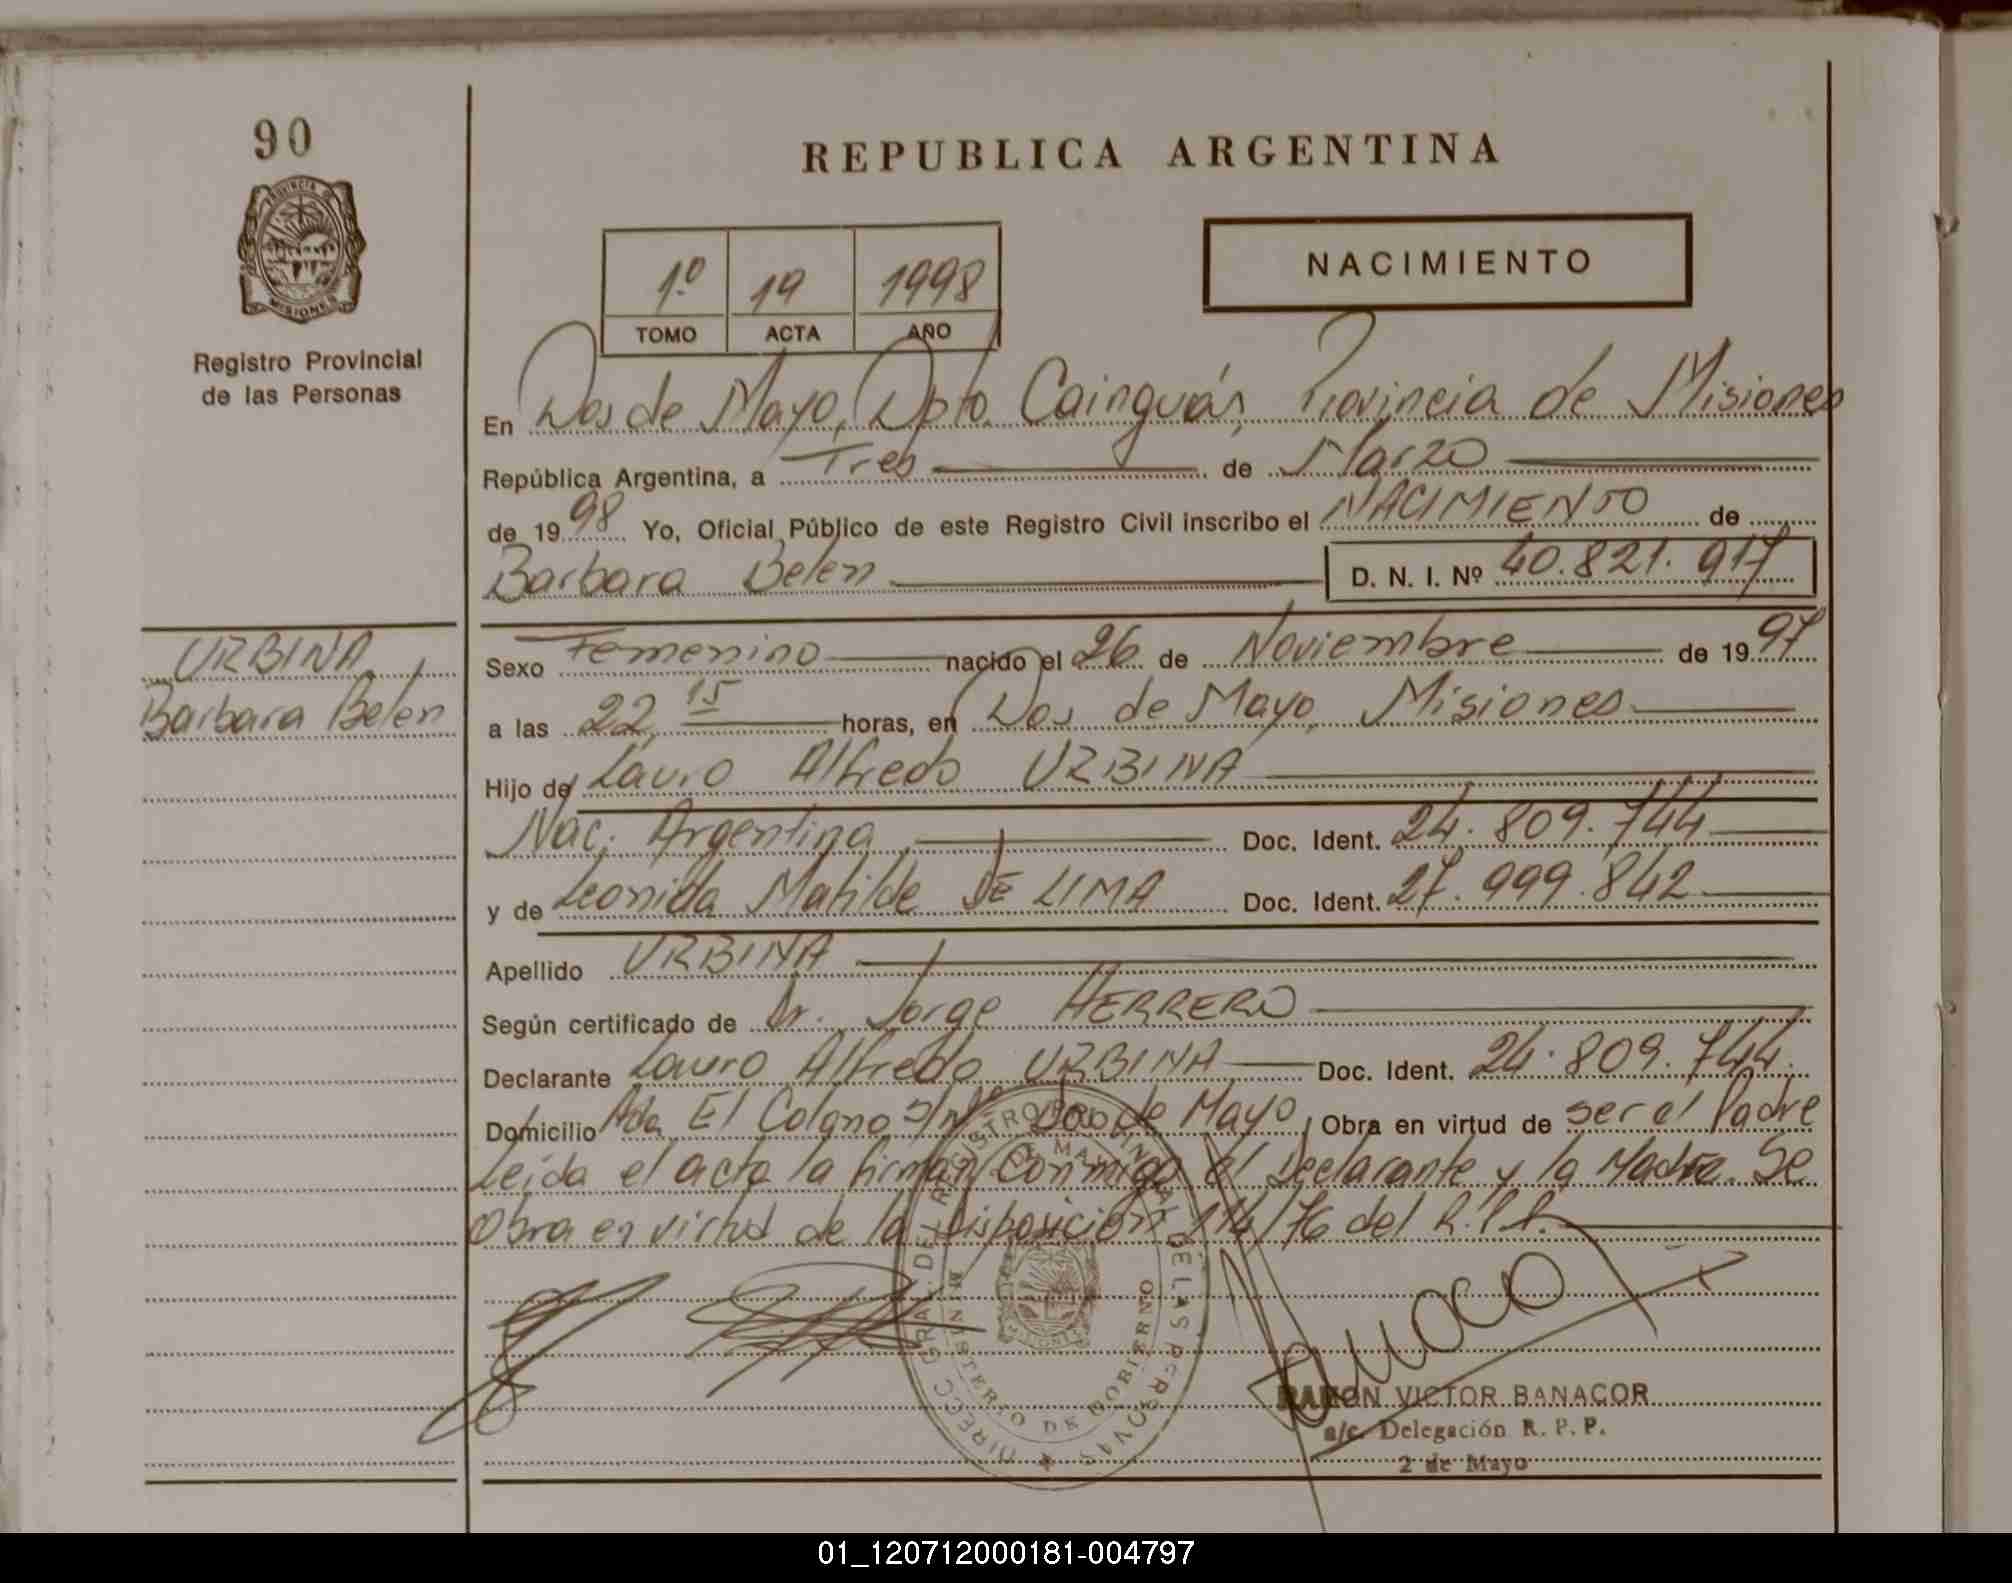 90
REPUBLICA ARGENTINA
PROVINCIA DE
MISIONES
Registro Provincial
de las Personas
1º 19 1998
TOMO ACTA AÑO
NACIMIENTO
En Dos de Mayo, Dpto. Cainguás, Provincia de Misiones
República Argentina, a Tres de Marzo
de 1998 Yo, Oficial Público de este Registro Civil inscribo el NACIMIENTO de
Barbara Belen D. N. I. Nº 40.821.917
URBINA,
Barbara Belen
Sexo Femenino nacido el 26 de Noviembre de 1997
a las 22 15 horas, en Dos de Mayo, Misiones
Hijo de Lauro Alfredo URBINA
Nac. Argentina Doc. Ident. 24.809.744
y de Leonida Matilde DE LIMA Doc. Ident. 27.999.842
Apellido URBINA
Según certificado de Dr. Jorge HERRERO
Declarante Lauro Alfredo URBINA Doc. Ident. 24.809.744.
Domicilio Avda El Colono S/Nº Dos de Mayo, Obra en virtud de ser el Padre
Leída el acta la firman conmigo el Declarante y la Madre. Se
Obra en virtud de la Disposición 114/76 del R.P.P.
DIRECC. GRAL. DEL REGISTRO PROVINCIAL DE LAS PERSONAS
MINISTERIO DE GOBIERNO
RAMON VICTOR BANACOR
a/c. Delegación R. P. P.
2 de Mayo
01_120712000181-004797